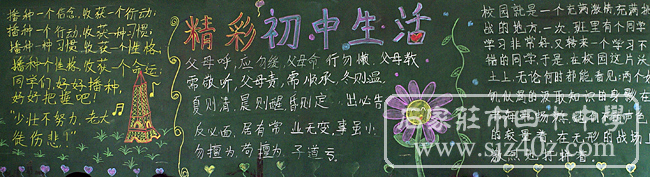 播种一个信念,收获一个行动;
播种一个行动,收获一种习惯;
播种一种习惯,收获一个性格;
播种个性格,收获一个命运;
同学们,好好播种,
好好把握吧!
“少壮不努力,老大
徒伤悲!”
精彩初中生活
父母呼,应勿缓,父母命 行勿懒,父母教
需敬听,父母责,需顺承,冬则温
夏则清 晨则醒 昏则定 出必告
反必面,居有常,业无变,事虽小
勿擅为,苟擅为 子道亏
校园就是一个充满激情充满挑
战的地方,一次,班里有个同学
学习非常好,又转来一个学习不
错的同学,于是,在校园这片沃
土上,无论何时都能看见:两个
的汲取知识的身影在
的较量者,在无形的战场上
石家庄市四十中学
www.sjz40z.com